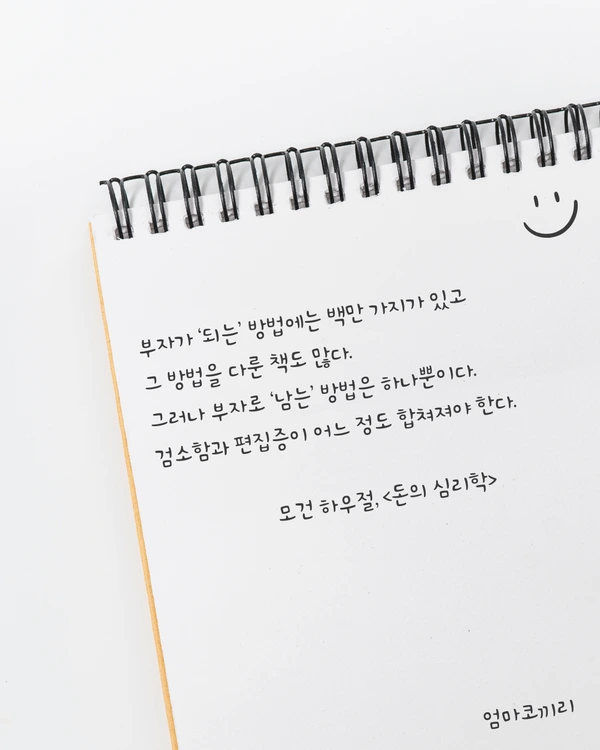 부자가 ‘되는’ 방법에는 백만 가지가 있고
그 방법을 다룬 책도 많다.
그러나 부자로 ‘남는’ 방법은 하나뿐이다.
검소함과 편집증이 어느 정도 합쳐져야 한다.
모건 하우절, <돈의 심리학>
엄마코끼리